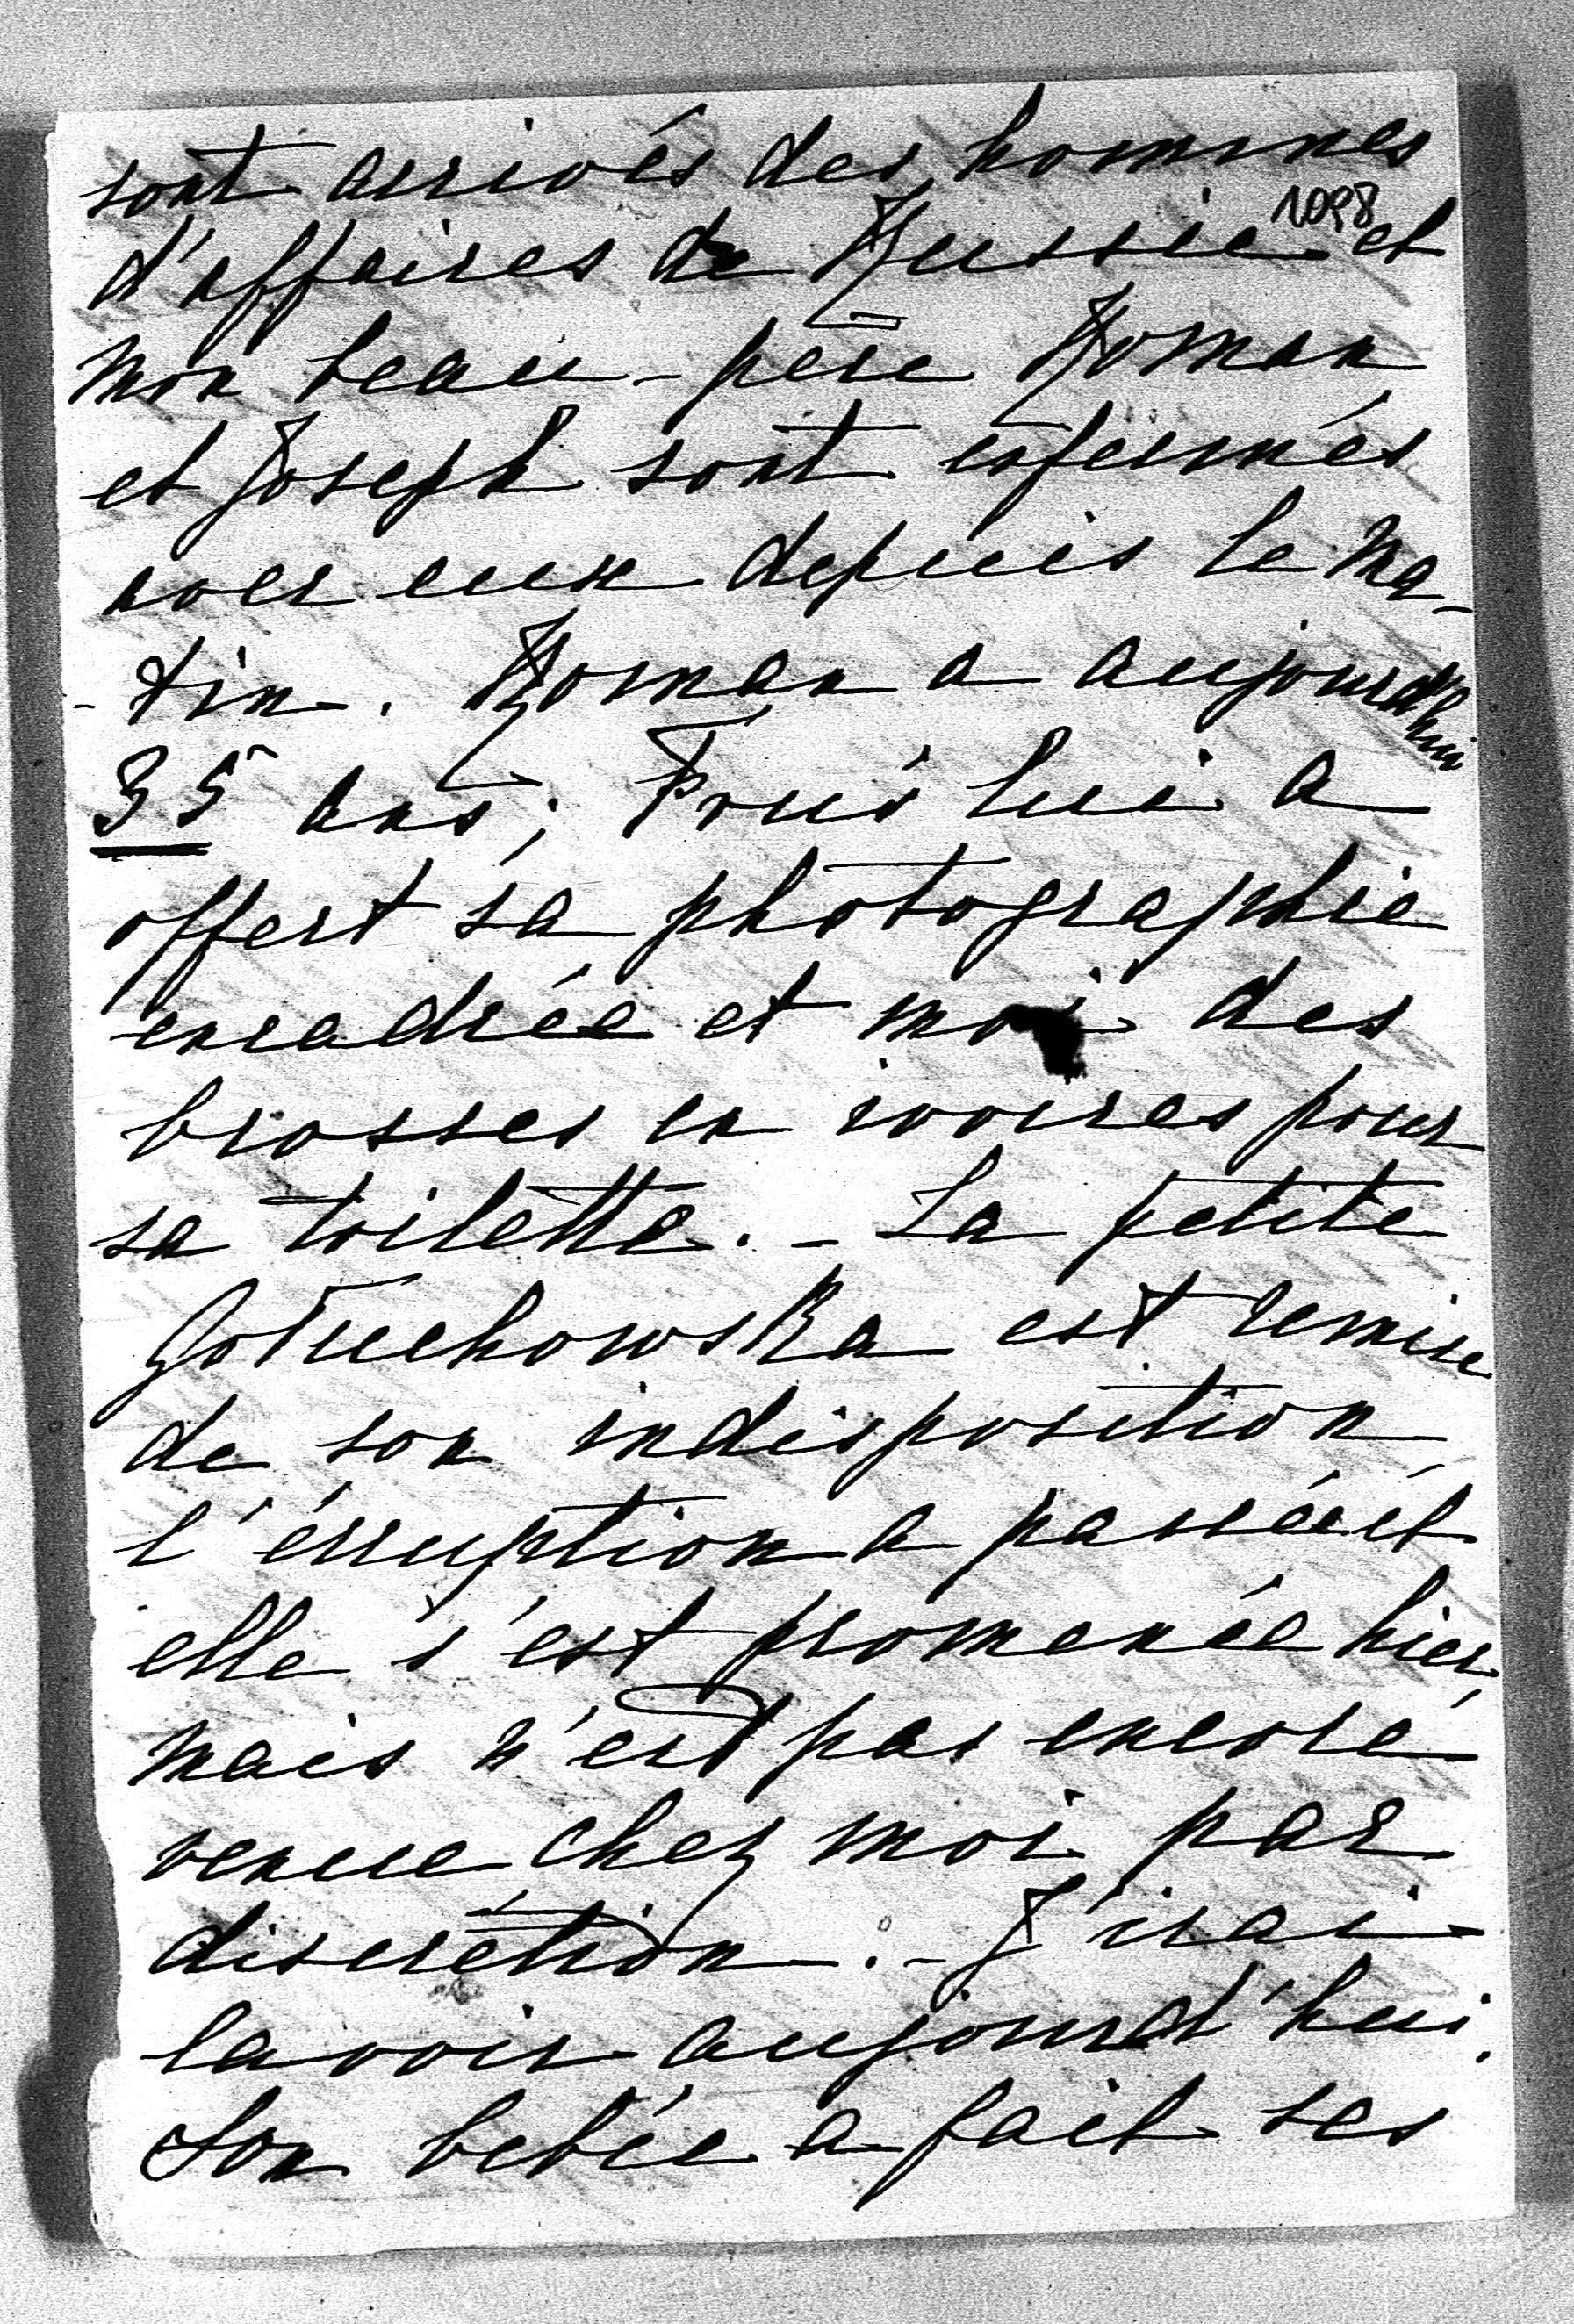 sont arrivés des hommes
1098
d'affaires de Russie et
mon beau-père Roman
et Joseph sont enfermés
avec eux depuis le ma-
-tin. Roman a aujourd'hui
35 ans; lui a
offert sa photographie
encadrée et moi des
brosses en ivoires pour
sa toilette. - La petite
Gołuchowska est remise
de son indisposition
l'érruption a passée et
elle s'est promenée hier
mais n'est pas encore
venue chez moi par
discrétion. - J'irai
la voir aujourd'hui.
Son bebée a fait ses